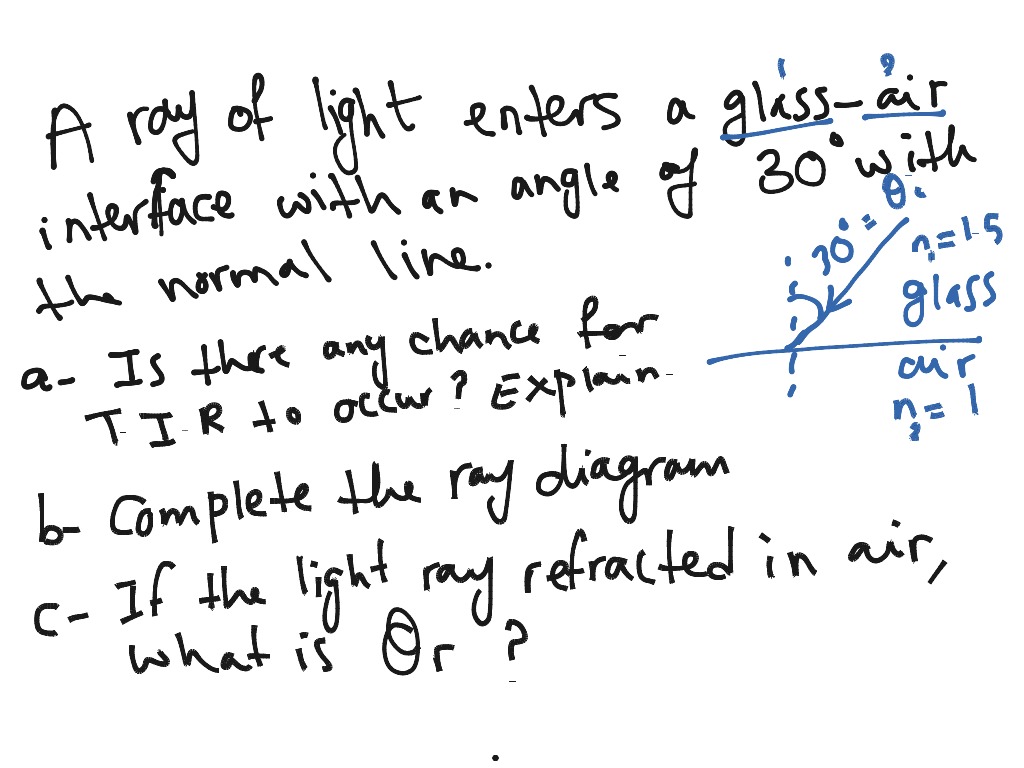 1 2
A ray of light enters a glass-air
interface with an angle of 30° with
the normal line.
30° = θi
n1=1.5
glass
air
n2=1
a- Is there any chance for
T.I.R to occur? Explain.
b- Complete the ray diagram
c- If the light ray refracted in air,
what is θr ?